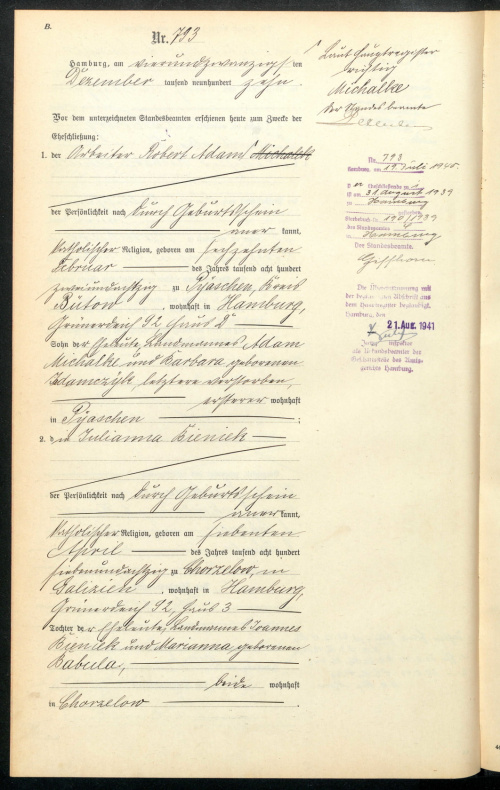 B.
Nr. 793
Hamburg, am vierundzwanzigsten
Dezember tausend neunhundert zehn.
Vor dem unterzeichneten Standesbeamten erschienen heute zum Zwecke der
Eheschließung:
1. der Arbeiter Robert Adam Michalck
der Persönlichkeit nach durch Geburtsschein
aner kannt,
katholischer Religion, geboren am sechzehnten
Februar des Jahres tausend acht hundert
zweiundachtzig zu Pyaschen, Kreis
Bütow, wohnhaft in Hamburg,
Grünerdeich 92 Haus 2
Sohn der Eheleute Landmannes Adam
Michalke und Barbara geborenen
Adamczyk, letztere verstorben,
ersterer wohnhaft
in Pyaschen ;
2. die Julianna Bieniek
der Persönlichkeit nach durch Geburtsschein
aner kannt,
katholischer Religion, geboren am siebenten
April des Jahres tausend acht hundert
siebenundachtzig zu Chorzelow, in
Galizien, wohnhaft in Hamburg,
Grünerdeich 92, Haus 3
Tochter der Eheleute, Landmannes Joannes
Bieniek und Marianna geborenen
Babula,
beide wohnhaft
in Chorzelow .
Laut Hauptregister
richtig
Michalke
Der Standesbeamte
Nr. 793
Hamburg, am 19. Juli 1940.
ist am 31. August 1939
in Hamburg
gestorben.
Sterbebuch Nr. 190/1939
des Standesamts
Hamburg
Der Standesbeamte.
Die Übereinstimmung mit
der Abschrift aus
dem Hauptregister beglaubigt.
Hamburg, den
21. Aug. 1941
Justizinspektor
als Urkundsbeamter der
Geschäftsstelle des Amts-
gerichts Hamburg.